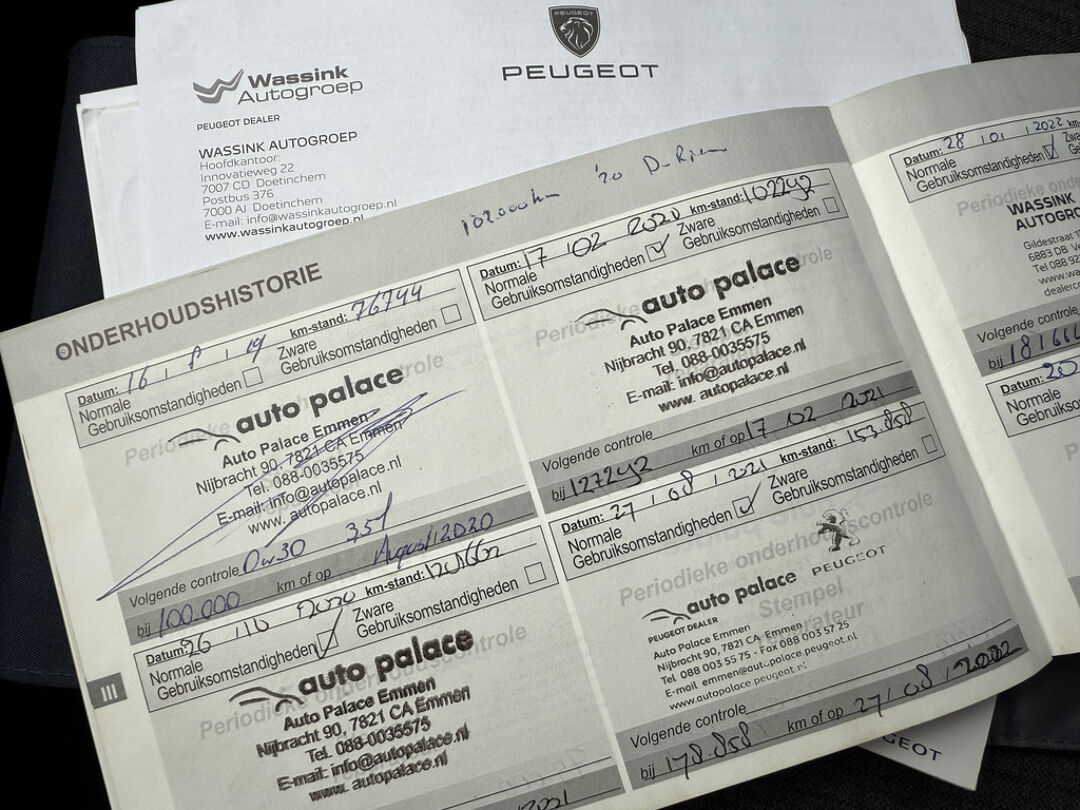 PEUGEOT
PEUGEOT
Wassink
Autogroep
PEUGEOT DEALER
WASSINK AUTOGROEP
Hoofdkantoor:
Innovatieweg 22
7007 CD Doetinchem
Postbus 376
7000 AJ Doetinchem
E-mail: info@wassinkautogroep.nl
www.wassinkautogroep.nl
ONDERHOUDSHISTORIE
Datum: 16 km-stand: 76744
Normale Zware
Gebruiksomstandigheden Gebruiksomstandigheden
auto palace
Auto Palace Emmen
Nijbracht 90, 7821 CA Emmen
Tel. 088-0035575
E-mail: info@autopalace.nl
www. autopalace.nl
Ow30
Volgende controle
bij 100.000 km of op August 2020
Datum: 26 2020 km-stand:
Normale Zware
Gebruiksomstandigheden Gebruiksomstandigheden
auto palace
Auto Palace Emmen
Nijbracht 90, 7821 CA Emmen
Tel. 088-0035575
E-mail: info@autopalace.nl
www. autopalace.nl
2021
III
102.000km '20
Datum: 17 02 2020 km-stand: 102292
Normale Zware
Gebruiksomstandigheden Gebruiksomstandigheden
auto palace
Auto Palace Emmen
Nijbracht 90, 7821 CA Emmen
Tel. 088-0035575
E-mail: info@autopalace.nl
www. autopalace.nl
Volgende controle
bij 127292 km of op 17 02 2021
Datum: 27 / 08 / 2021 km-stand: 153.858
Normale Zware
Gebruiksomstandigheden Gebruiksomstandigheden
Periodieke onderhoudscontrole
Stempel
PEUGEOT
auto palace
PEUGEOT DEALER
Auto Palace Emmen
Nijbracht 90, 7821 CA Emmen
Tel 088 003 55 75 - Fax 088 003 57 25
E-mail emmen@autopalace.peugeot.nl
www.autopalace.peugeot.nl
Volgende controle
bij 178.858 km of op 27 / 08 / 2022
Datum: 28 / 01 / 2022 km
Normale
Gebruiksomstandigheden
Periodieke
WASSINK
AUTOGRO
Gildestraat
6883 DB
Tel 088
www.wa
dealer
Volgende controle
bij 181664
Datum: 20
Normale
Gebruiksomst
GEOT